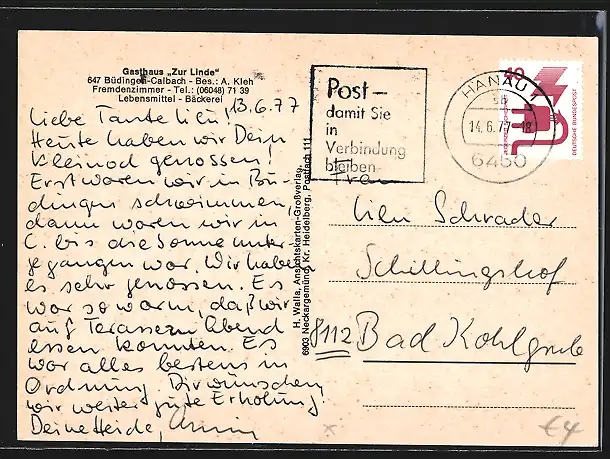 Gasthaus „Zur Linde“
647 Büdingen-Calbach - Bes.: A. Kleh
Fremdenzimmer - Tel.: (06048) 71 39
Lebensmittel - Bäckerei
13.6.77
Liebe Tante Lili!
Heute haben wir Dein
Kleinod genossen!
Erst waren wir in Bü-
dingen schwimmen,
dann waren wir in
C. bis die Sonne unter-
gegangen war. Wir haben
es sehr genossen. Es
war so warm, daß wir
auf Terassen Abend
essen konnten. Es
war alles bestens in
Ordnung. Wir wünschen
wir weiter gute Erholung
Deine Heide,
H. Walla, Ansichtskarten-Großverlag,
6903 Neckargemünd, Kr. Heidelberg, Postfach 111
Post –
damit Sie
in
Verbindung
bleiben
HANAU 1
sb
14.6.77-18
6450
40
DEUTSCHE BUNDESPOST
Frau
Lili Schrader
Schillingshof
8112 Bad Kohlgrub
€4